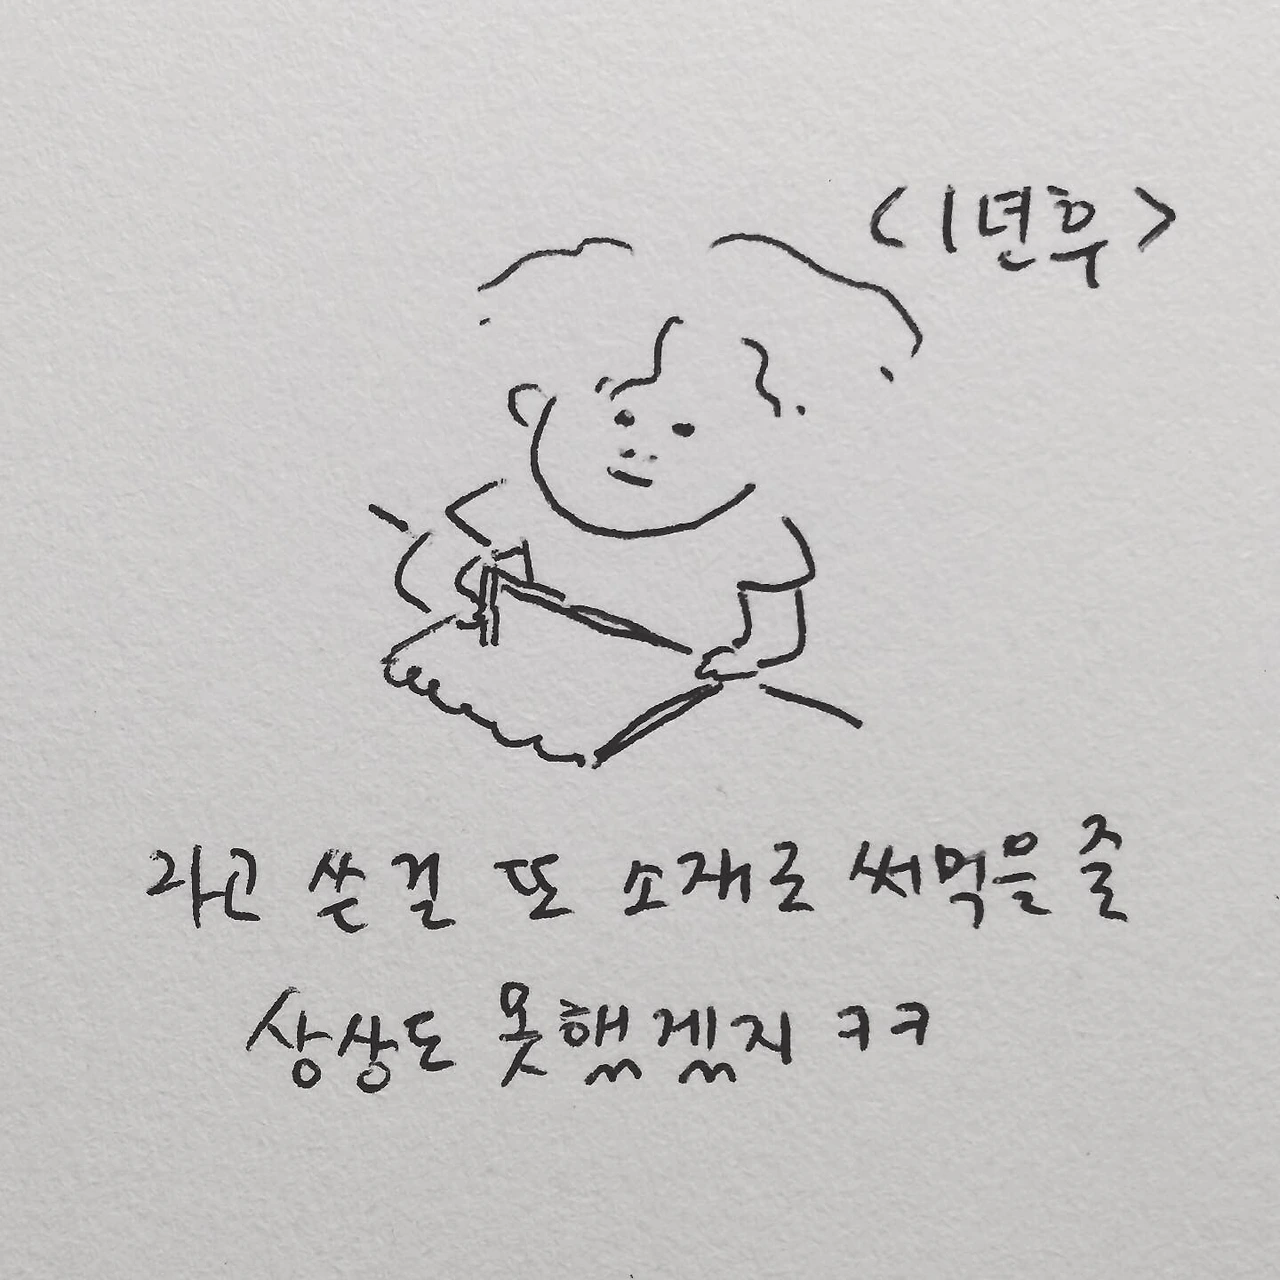 <1년후>
라고 쓴걸 또 소재로 써먹을 줄
상상도 못했겠지 ㅋㅋ